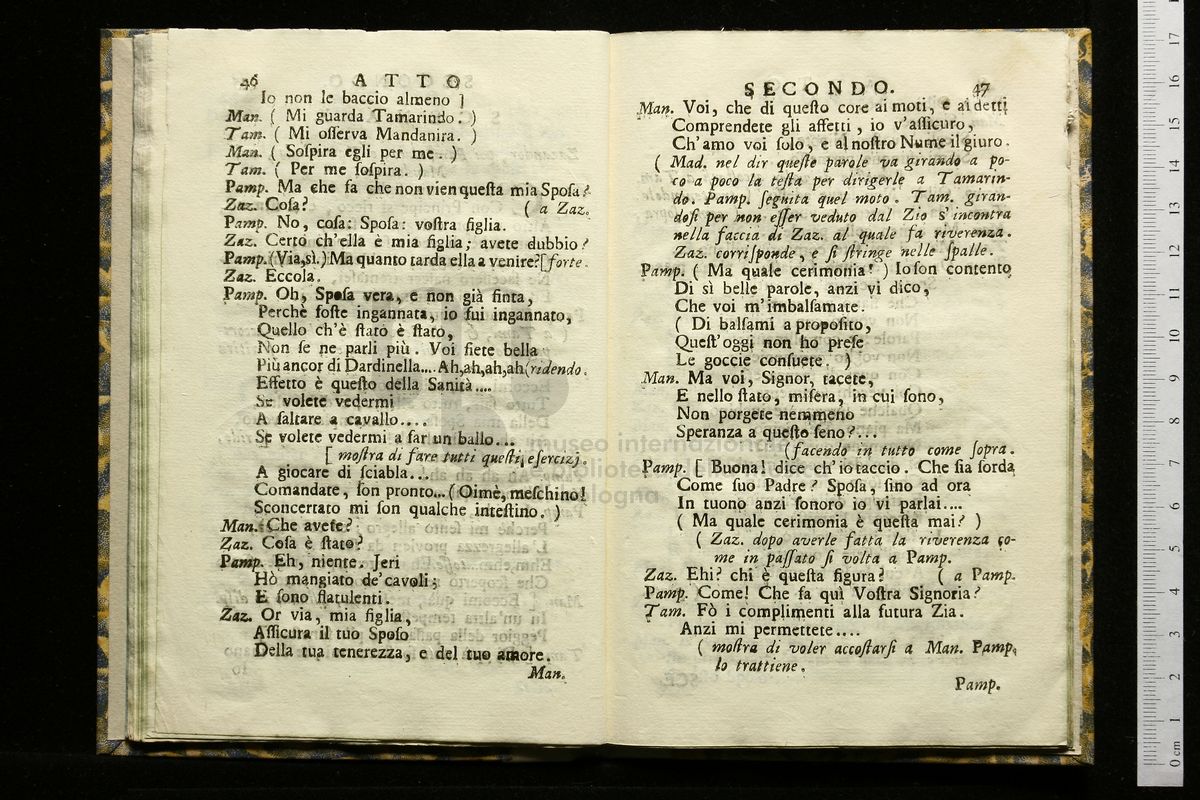 46 ATTO
Io non le baccio almeno ]
Man. ( Mi guarda Tamarindo. )
Tam. ( Mi osserva Mandanira. )
Man. ( Sospira egli per me. )
Tam. ( Per me sospira. )
Pamp. Ma che fa che non vien questa mia Sposa?
Zaz. Cosa? ( a Zaz.
Pamp. No, cosa: Sposa: vostra figlia.
Zaz. Certo ch'ella è mia figlia; avete dubbio?
Pamp. (Via, sì.) Ma quanto tarda ella a venire? [forte.
Zaz. Eccola.
Pamp. Oh, Sposa vera, e non già finta,
Perchè foste ingannata, io fui ingannato,
Quello ch'è stato è stato,
Non se ne parli più. Voi siete bella
Più ancor di Dardinella.... Ah, ah, ah, ah (ridendo.
Effetto è questo della Sanità....
Se volete vedermi
A saltare a cavallo....
Se volete vedermi a far un ballo...
[ mostra di fare tutti questi esercizj.
A giocare di sciabla...
Comandate, son pronto... ( Oimè, meschino!
Sconcertato mi son qualche intestino. )
Man. Che avete?
Zaz. Cosa è stato?
Pamp. Eh, niente. Jeri
Hò mangiato de' cavoli;
E sono flatulenti.
Zaz. Or via, mia figlia,
Assicura il tuo Sposo
Della tua tenerezza, e del tuo amore.
Man.
SECONDO. 47
Man. Voi, che di questo core ai moti, e ai detti
Comprendete gli affetti, io v'assicuro,
Ch'amo voi solo, e al nostro Nume il giuro.
( Mad. nel dir queste parole va girando a po-
co a poco la testa per dirigerle a Tamarin-
do. Pamp. seguita quel moto. Tam. giran-
dosi per non esser veduto dal Zio s'incontra
nella faccia di Zaz. al quale fa riverenza.
Zaz. corrisponde, e si stringe nelle spalle.
Pamp. ( Ma quale cerimonia! ) Io son contento
Di sì belle parole, anzi vi dico,
Che voi m'imbalsamate.
( Di balsami a proposito,
Quest'oggi non ho prese
Le goccie consuete. )
Man. Ma voi, Signor, tacete,
E nello stato, misera, in cui sono,
Non porgete nemmeno
Speranza a questo seno?...
(facendo in tutto come sopra.
Pamp. [ Buona! dice ch'io taccio. Che sia sorda
Come suo Padre? Sposa, sino ad ora
In tuono anzi sonoro io vi parlai....
( Ma quale cerimonia è questa mai? )
( Zaz. dopo averle fatta la riverenza co-
me in passato si volta a Pamp.
Zaz. Ehi? chi è questa figura? ( a Pamp.
Pamp. Come! Che fa quì Vostra Signoria?
Tam. Fò i complimenti alla futura Zia.
Anzi mi permettete....
( mostra di voler accostarsi a Man. Pamp.
lo trattiene.
Pamp.